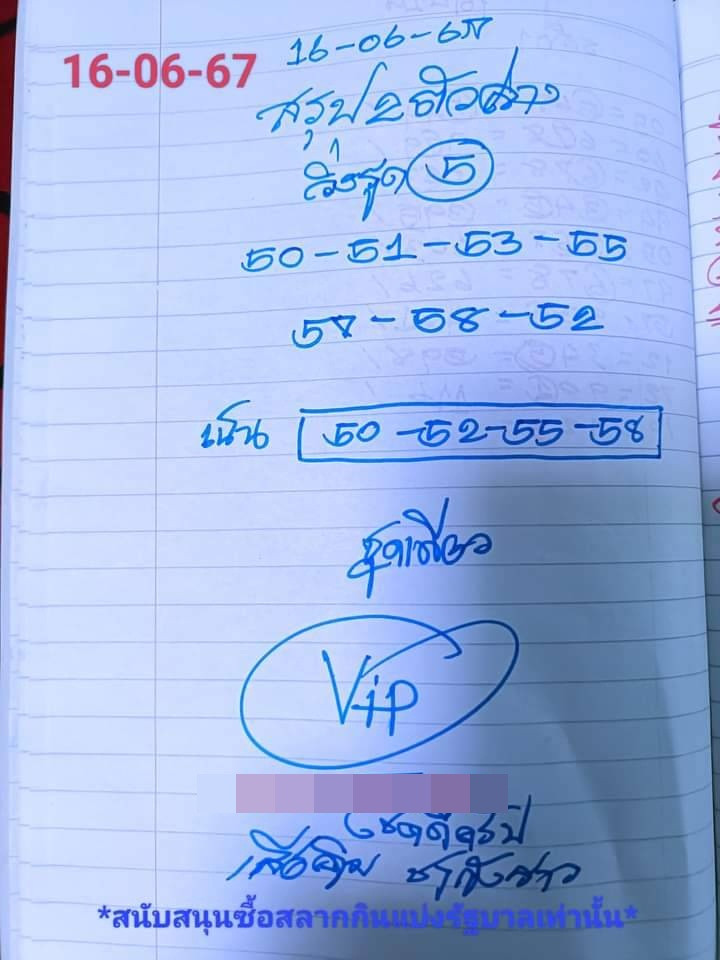 16-06-67
16-06-67
สรุป 2 ตัวล่าง
วิ่งรูด 5
50-51-53-55
57-58-52
เน้น 50-52-55-58
ชุดเดียว
Vip
โชคดีครับ
*สนับสนุนซื้อสลากกินแบ่งรัฐบาลเท่านั้น*